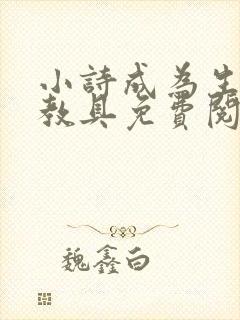 小詩成為生
教具免費閱
魏鑫白